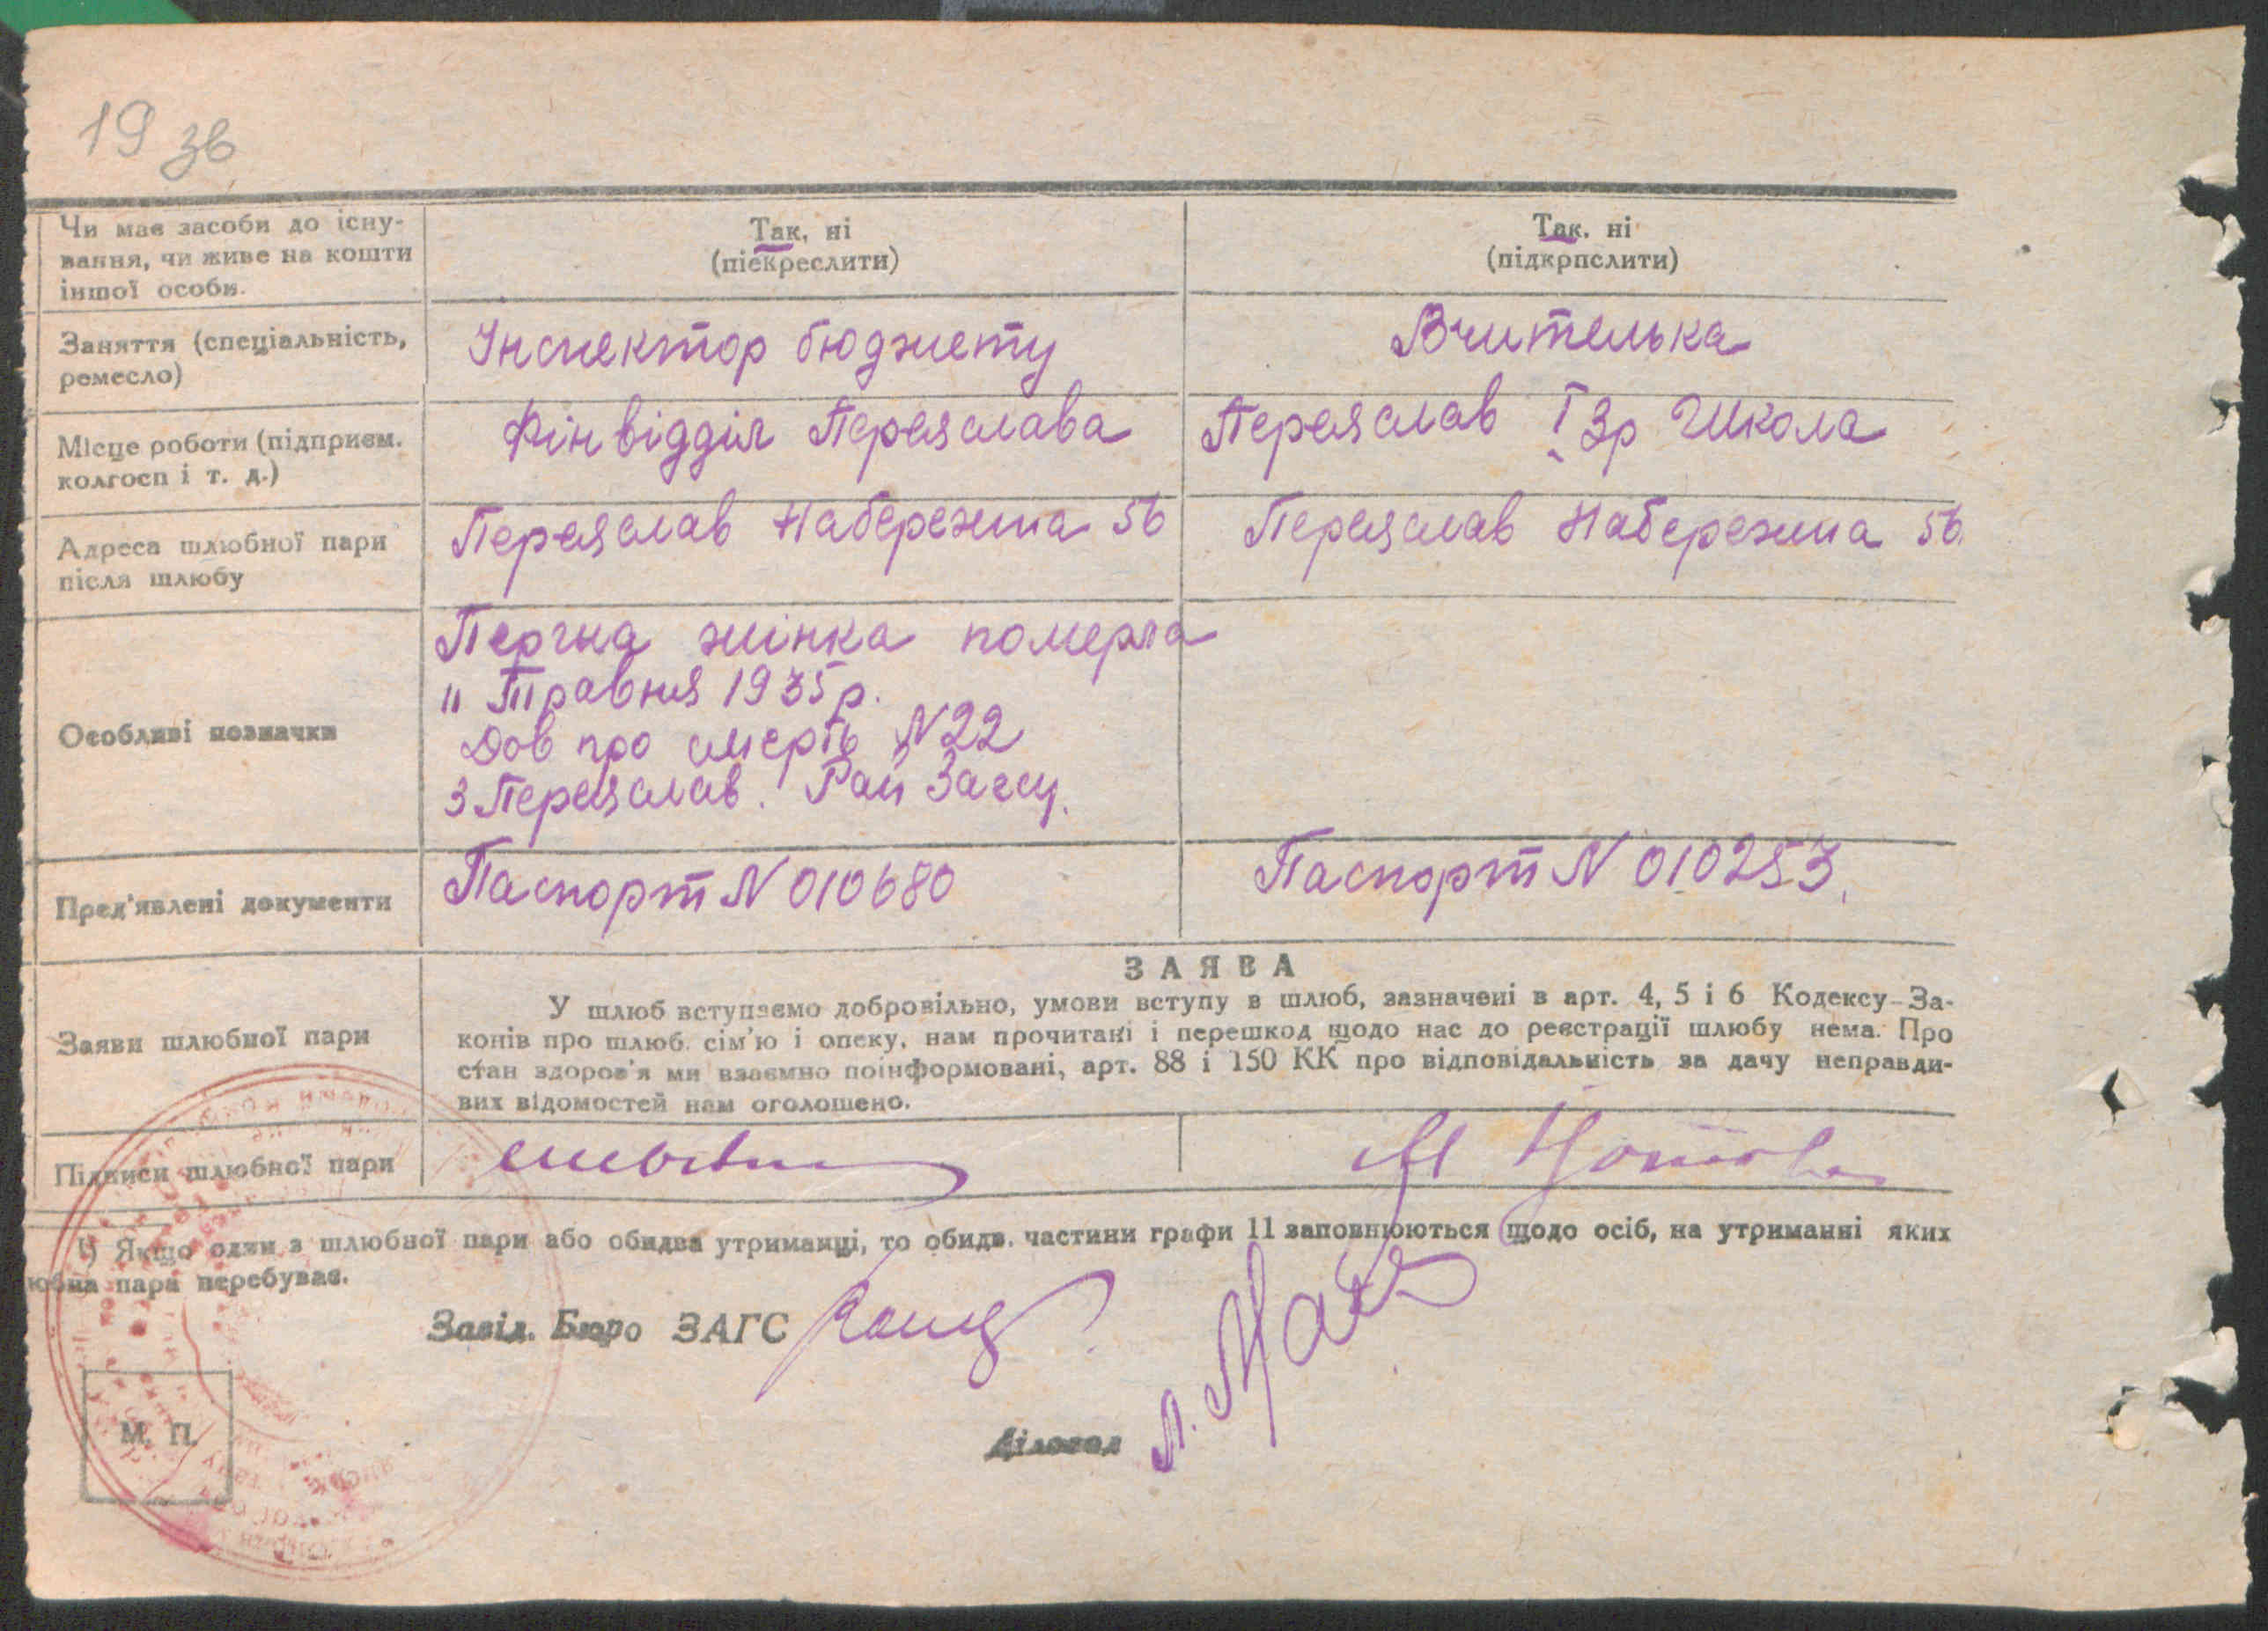 19 зв
Чи має засоби до існу-
вання, чи живе на кошти
іншої особи.
Так, ні
(піекреслити)
Так. ні
(підкрпслити)
Заняття (спеціальність,
ремесло)
Інспектор бюджету
Вчителька
Місце роботи (підприєм.
колгосп і т. д.)
Фінвідділ Переяслава
Переяслав І Зр Школа
Адреса шлюбної пари
після шлюбу
Переяслав Набережна 56
Переяслав Набережна 56
Особливі позначки
Перша жінка померла
11 Травня 1935 р.
Дов про смерть N 22
З Переяслав. Рай Загсу.
Пред'явлені документи
Паспорт N 010680
Паспорт N 010253.
Заяви шлюбної пари
ЗАЯВА
У шлюб вступаємо добровільно, умови вступу в шлюб, зазначені в арт. 4, 5 і 6 Кодексу За-
конів про шлюб. сім'ю і опеку, нам прочитані і перешкод щодо нас до реєстрації шлюбу нема. Про
стан здоров'я ми взаємно поінформовані, арт. 88 і 150 КК про відповідальність за дачу неправди-
вих відомостей нам оголошено.
Підписи шлюбної пари
1) Якщо один з шлюбної пари або обидва утриманці, то обидв. частини графи 11 заповнюються щодо осіб, на утриманні яких
юбна пара перебуває.
Завід. Бюро ЗАГС
М. П.
Діловод